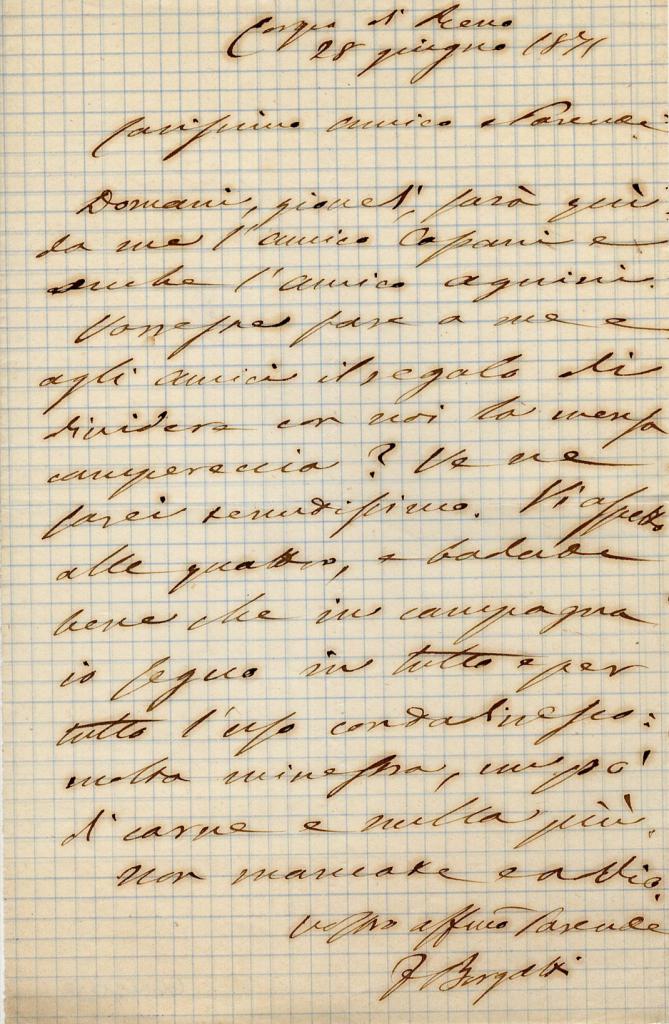 di Reno
28 giugno 1871
Carissimo amico e Parente:
Domani, giovedì, sarà quì
da me l'amico Capani e
anche l'amico Agnini.
Vorreste fare a me e
agli amici il regalo di
dividere con noi la mensa
campereccia? Ve ne
sarei tenutissimo. V'aspetto
alle quattro, e badate
bene che in campagna
io seguo in tutto e per
tutto l'uso contadinesco:
molta minestra, un po'
di carne e nulla più.
Non mancate e addio.
vostro affmo Parente
F Borgatti